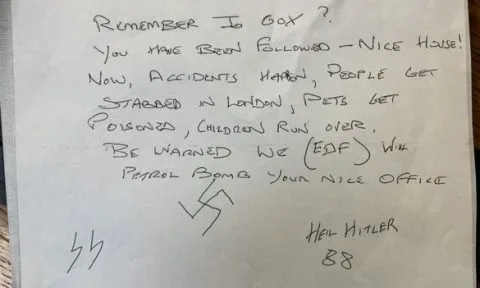 REMEMBER JO COX ?
YOU HAVE BEEN FOLLOWED – NICE HOUSE!
NOW, ACCIDENTS HAPPEN, PEOPLE GET
STABBED IN LONDON, PETS GET
POISONED, CHILDREN RUN OVER.
BE WARNED WE (EDF) WILL
PETROL BOMB YOUR NICE OFFICE
HEIL HITLER
SS
88